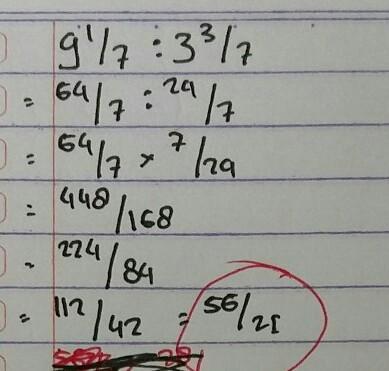 9 1/7 : 3 3/7
= 64/7 : 24/7
= 64/7 × 7/24
= 448/168
= 224/84
= 112/42 = 56/21